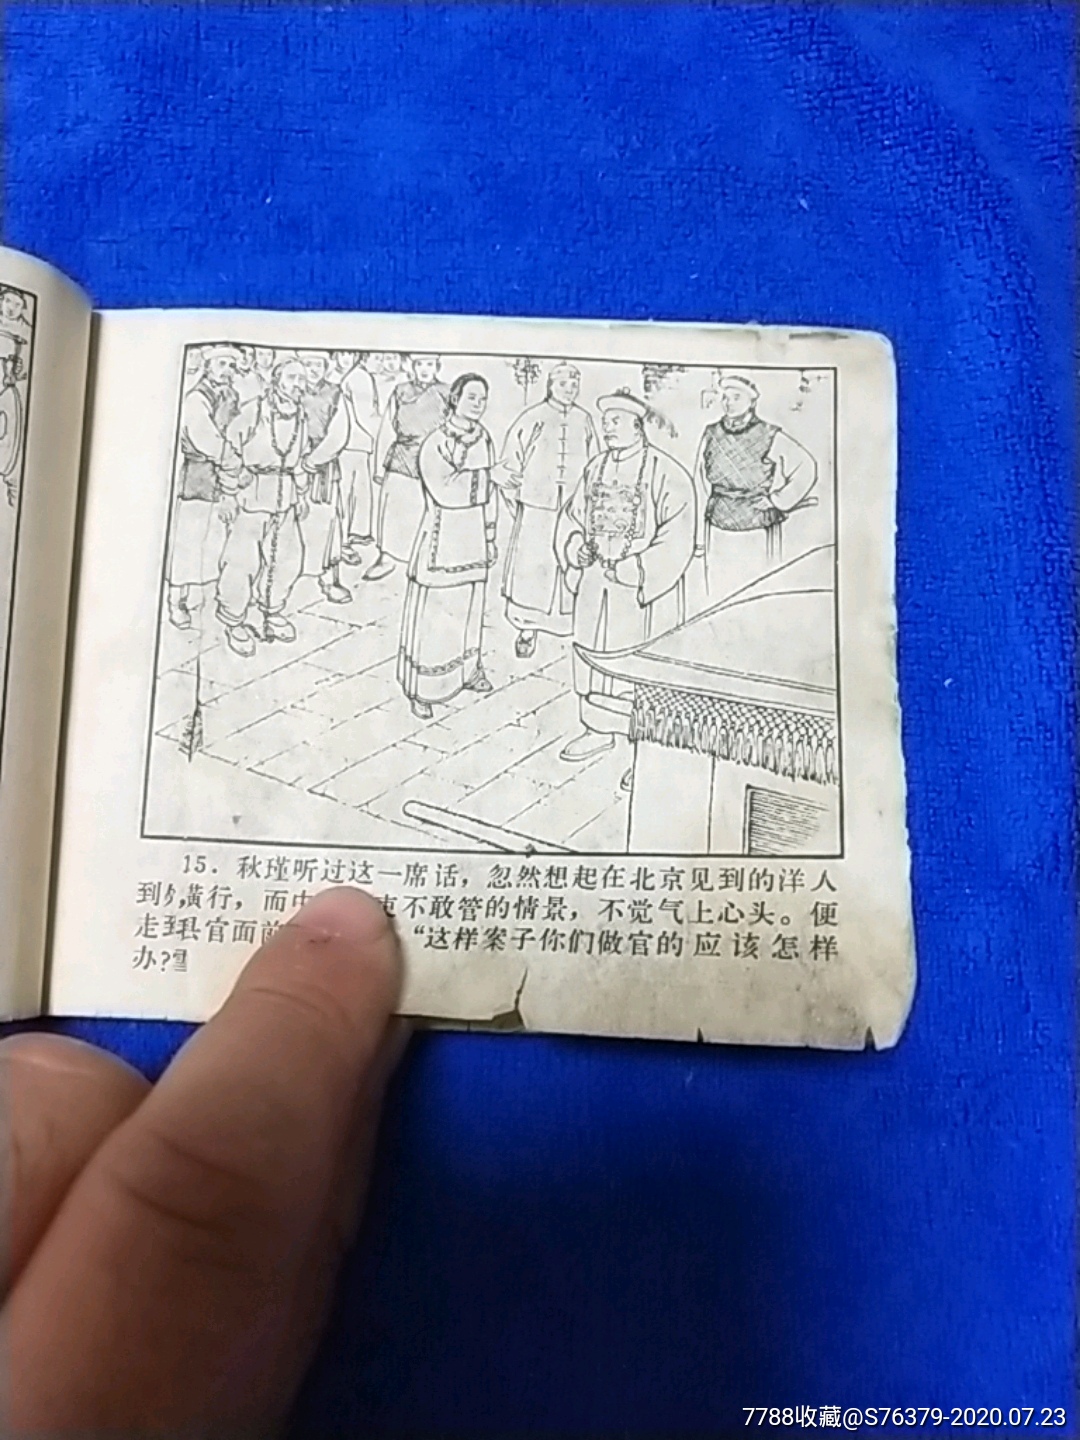 15. 秋瑾听过这一席话，忽然想起在北京见到的洋人
到横行，而 不敢管的情景，不觉气上心头。便
走到县官面 “这样案子你们做官的应该怎样
办？
7788收藏@S76379-2020.07.23